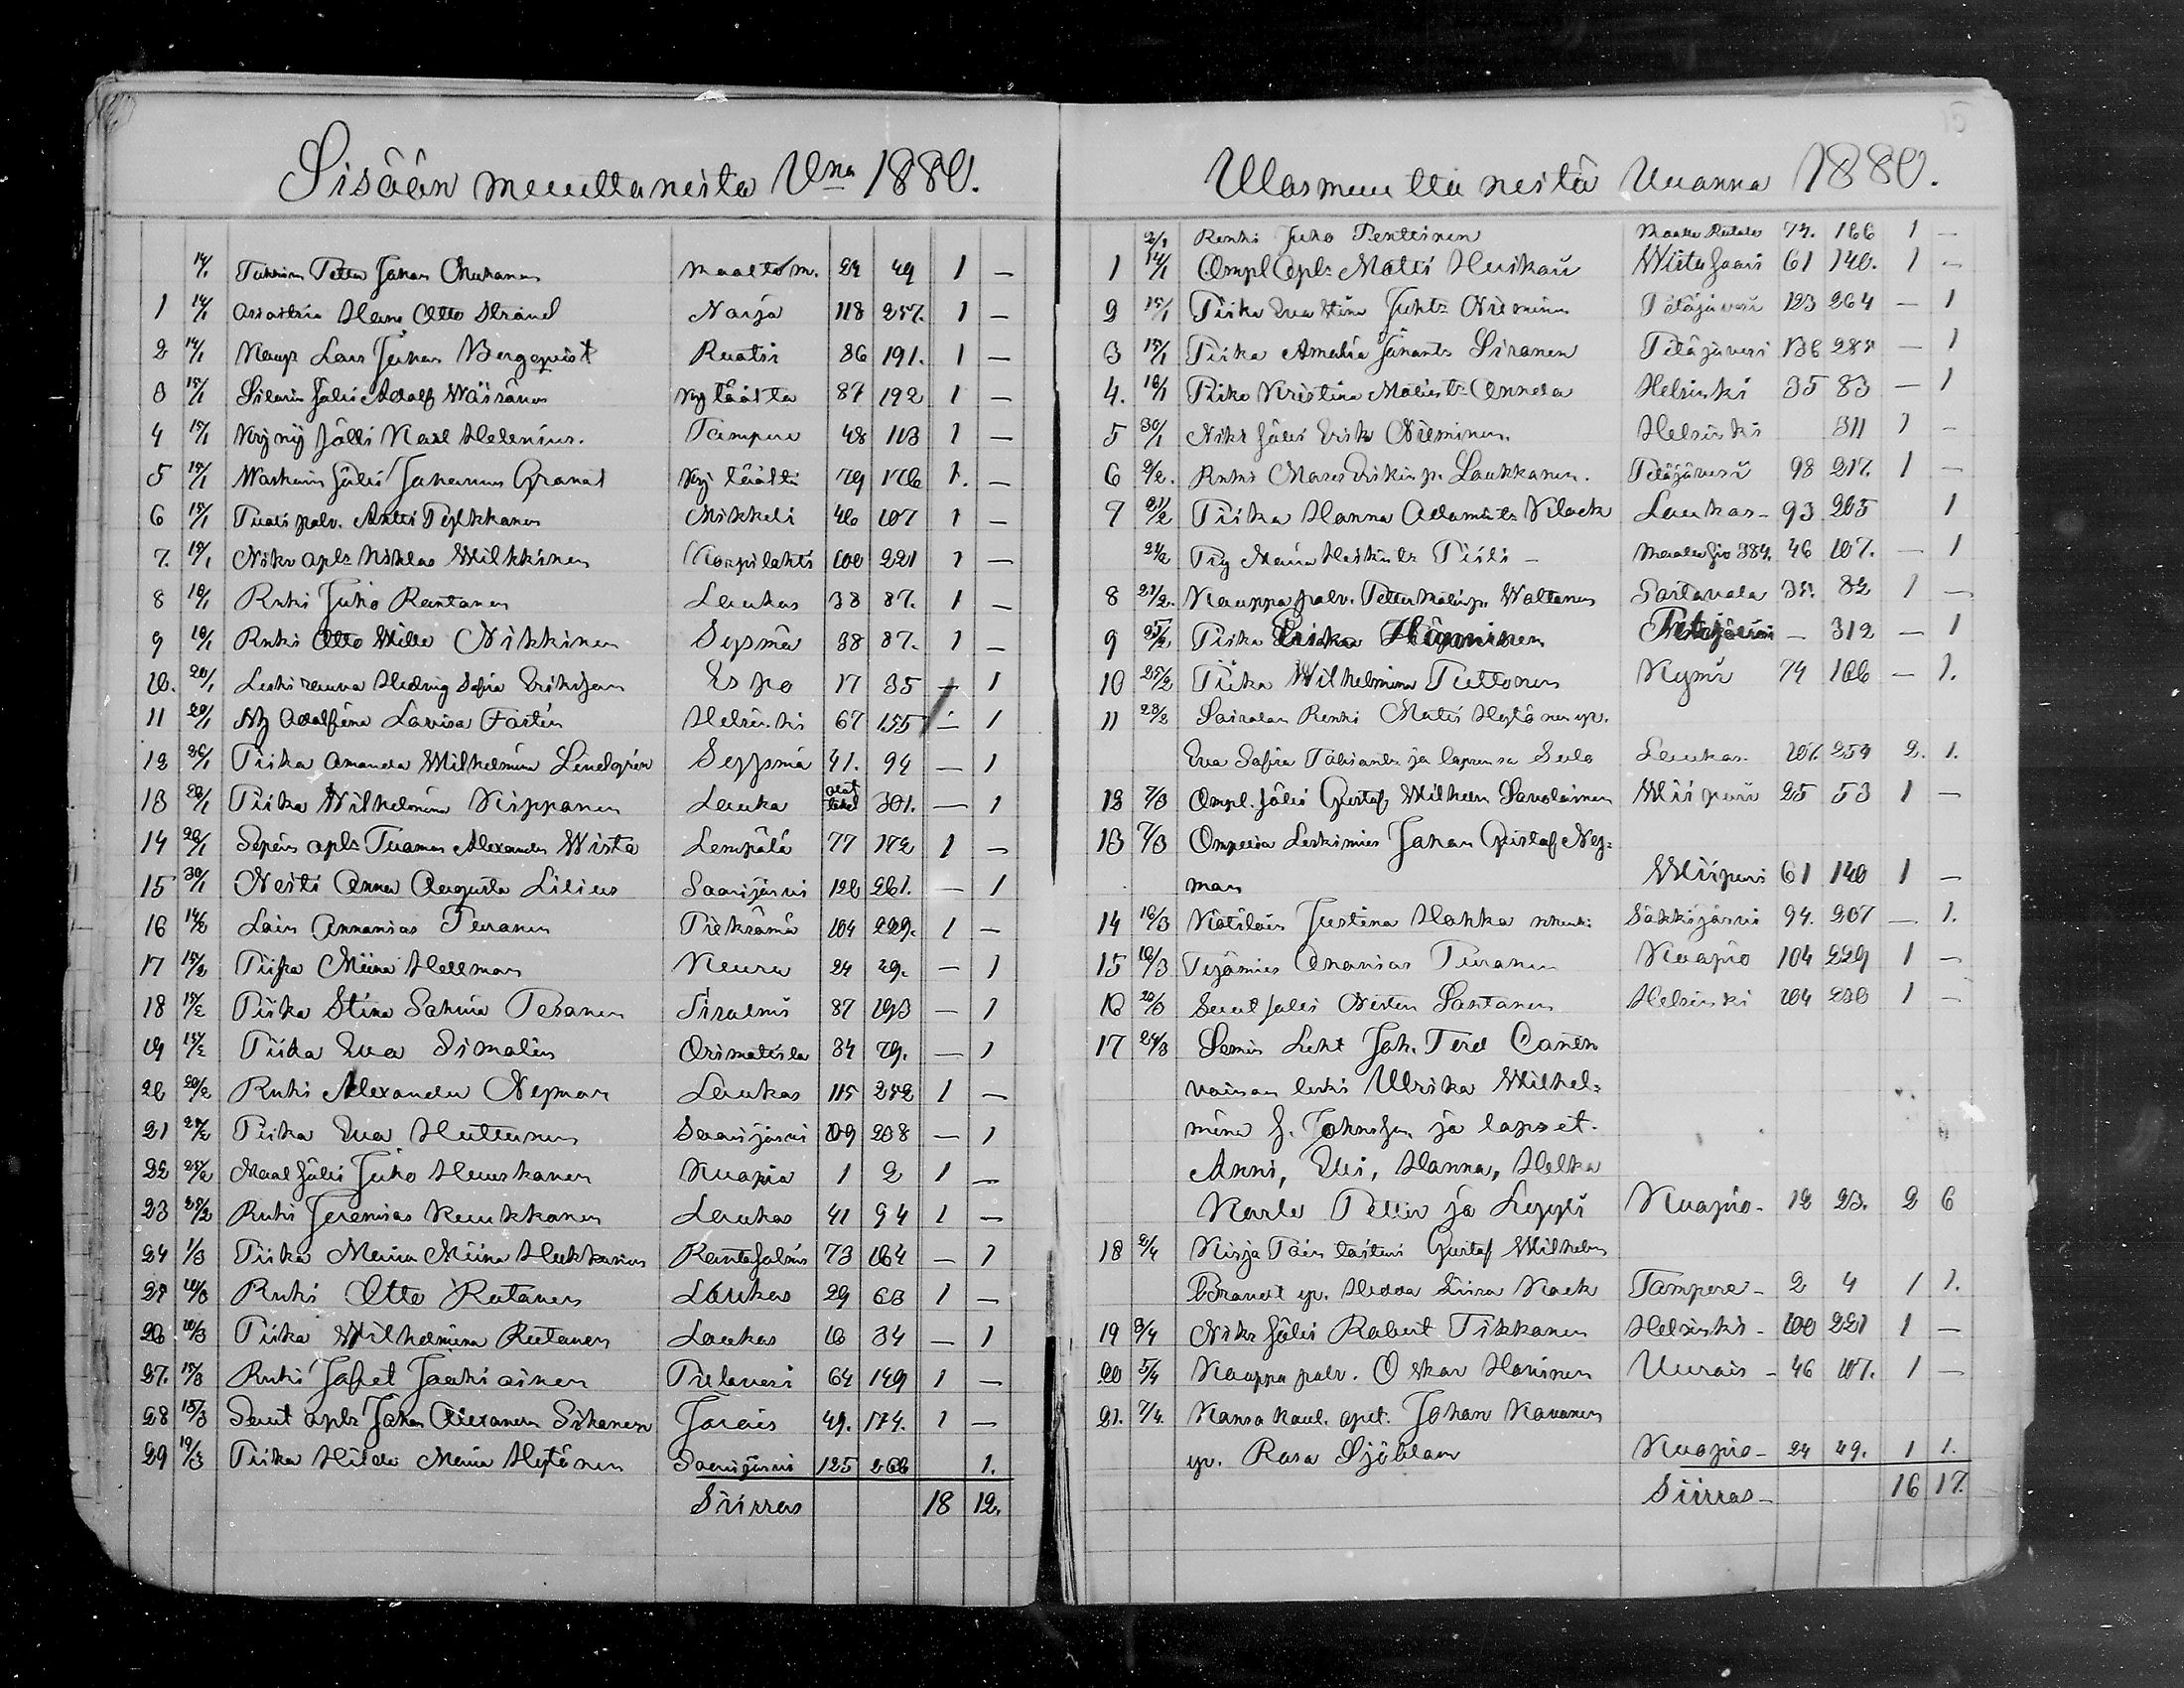 Sisään muuttaneista Vna 1880.
14/1 Petter Johan 24 49 1 —
1 14/1 Hans Otto Strand Norja 118 257. 1 —
2 14/1 Kaup. Lars Johan Bergqvist Ruotsi 86 191. 1 —
3 15/1 Adolf Wäisänen 87 192 1 —
4 15/1 Karl Helenius. Tampere 48 113 1 —
5 15/1 Johannes Granat 79 176 1. —
6 15/1 Puoti palv. Antti Pylkkanen Mikkeli 46 107 1 —
7. 15/1 Nikr apls Niklas Wilkkinen Korpilahti 100 221 1 —
8 16/1 Renki Juho Rantanen Laukas 38 87. 1 —
9 16/1 Renki Otto Wille Nikkinen Sysmä 38 87. 1 —
10. 20/1 Leski rouva Hedvig Sofia Erikson Espo 17 35 — 1
11 20/1 Adolfina Lovisa Fortén Helsinki 67 155 — 1
12 26/1 Piika Amanda Wilhelmina Lindgrén Syssmä 41. 94 — 1
13 26/1 Piika Wilhelmina Kipponen Lauka 301. — 1
14 26/1 Sepän apls Tuomas Alexander Wista Lempälä 77 172 1 —
15 30/1 Neiti Anna Augusta Lilius Saarijärvi 120 261. — 1
16 14/2 Annanias Puranen Pieksämä 104 229. 1 —
17 15/2 Piika Miina Hellman Keuru 24 49. — 1
18 15/2 Piika Stina Sahina Pesanen 87 193 — 1
19 15/2 Piika Eva Simolin Orimattila 34 79. — 1
20 20/2 Renki Alexander Nyman Laukas 115 252 1 —
21 24/2 Piika Eva Huttunen Saarijärvi 109 238 — 1
22 25/2 Maal Sälli Juho Huuskanen Kuopio 1 2 1 —
23 28/2 Renki Jeremias Kuukkanen Laukas 41 94 1 —
24 1/3 Piika Maria Miina Hukkanen Rantasalmi 73 164 — 1
25 10/3 Renki Otto Rutanen Laukas 29 63 1 —
26 10/3 Piika Wilhelmina Rutanen Laukas 16 34 — 1
27. 15/3 Renki Jafet Jaakiainen Pielavesi 64 149 1 —
28 15/3 Suut apls Johan Alexander Sikanen Jorois 49. 174. 1 —
29 19/3 Piika Hilda Maria Hytönen Saarijärvi 125 266 1.
Siirros 18 12.
Ulosmuuttaneista Vuonna 1880.
2/1 Renki Juho Penttinen 74. 166 1 —
1 14/1 Ompl Apls Matti Huskau Wiitasaari 61 140. 1 —
2 15/1 Piika Eva Stina Juhts Nieminen Petäjävesi 123 264 — 1
3 15/1 Piika Amalia Siranen Petäjävesi 136 285 — 1
4. 16/1 Piika Kristina Matints Annela Helsinki 35 83 — 1
5 30/1 Nikr Sälli Erik Nieminen. Helsinki 311 1 —
6 2/2. Renki Mares Erikin p. Laukkanen. Petäjävesi 98 217. 1 —
7 21/2 Piika Hanna Adamints Klack Laukas — 93 205 1
21/2 Maria Heikints Piili — 384. 46 107. — 1
8 21/2. Kauppapalv. Petter Matinp. Waltanen Sortavala 35. 82 1 —
9 25/2 Piika Hänninen Petäjävesi — 312 — 1
10 25/2 Piika Wilhelmina Puttonen Kymi 74 166 — 1.
11 28/2 Sairalan Renki Matti Hytönen vp.
Eva Safira Tobiants ja lapsensa Sulo Laukas. 107. 254 2. 1.
12 7/3 Ompl. Sälli Gustaf Wilhelm Savolainen Wiipuri 25 53 1 —
13 7/3 Ompelia Leskimies Johan Gustaf Ney=
man Wiipuri 61 140 1 —
14 16/3 Kätilöin Justina Hakka Säkkijärvi 94. 207 — 1.
15 16/3 Työmies Ananias Puranen Kuopio 104 229 1 —
16 20/3 Suut Sälli Nisten Santanen Helsinki 104 230 1 —
17 24/3 Semin Leht Joh. Ferd Canén
vainan leski Ulrika Wilhel=
mina s. Johnsson ja lapset.
Anni, Elli, Hanna, Helka
Karle Petter ja Leppti Kuopio — 12 23. 2 6
18 2/4 Kirja Gustaf Wilhelm
Brandt vp. Hedda Siira Kack Tampere — 2 4 1 1.
19 3/4 Nikr Sälli Robert Tikkanen Helsinki — 100 221 1 —
20 5/4 Kauppa palv. Oskar Haninen Uurais — 46 107. 1 —
21. 7/4. Kansa Koul. opet. Johan Kavonen
vp. Rosa Sjöblom Kuopio — 24 49. 1 1.
Siirros — 16 17.